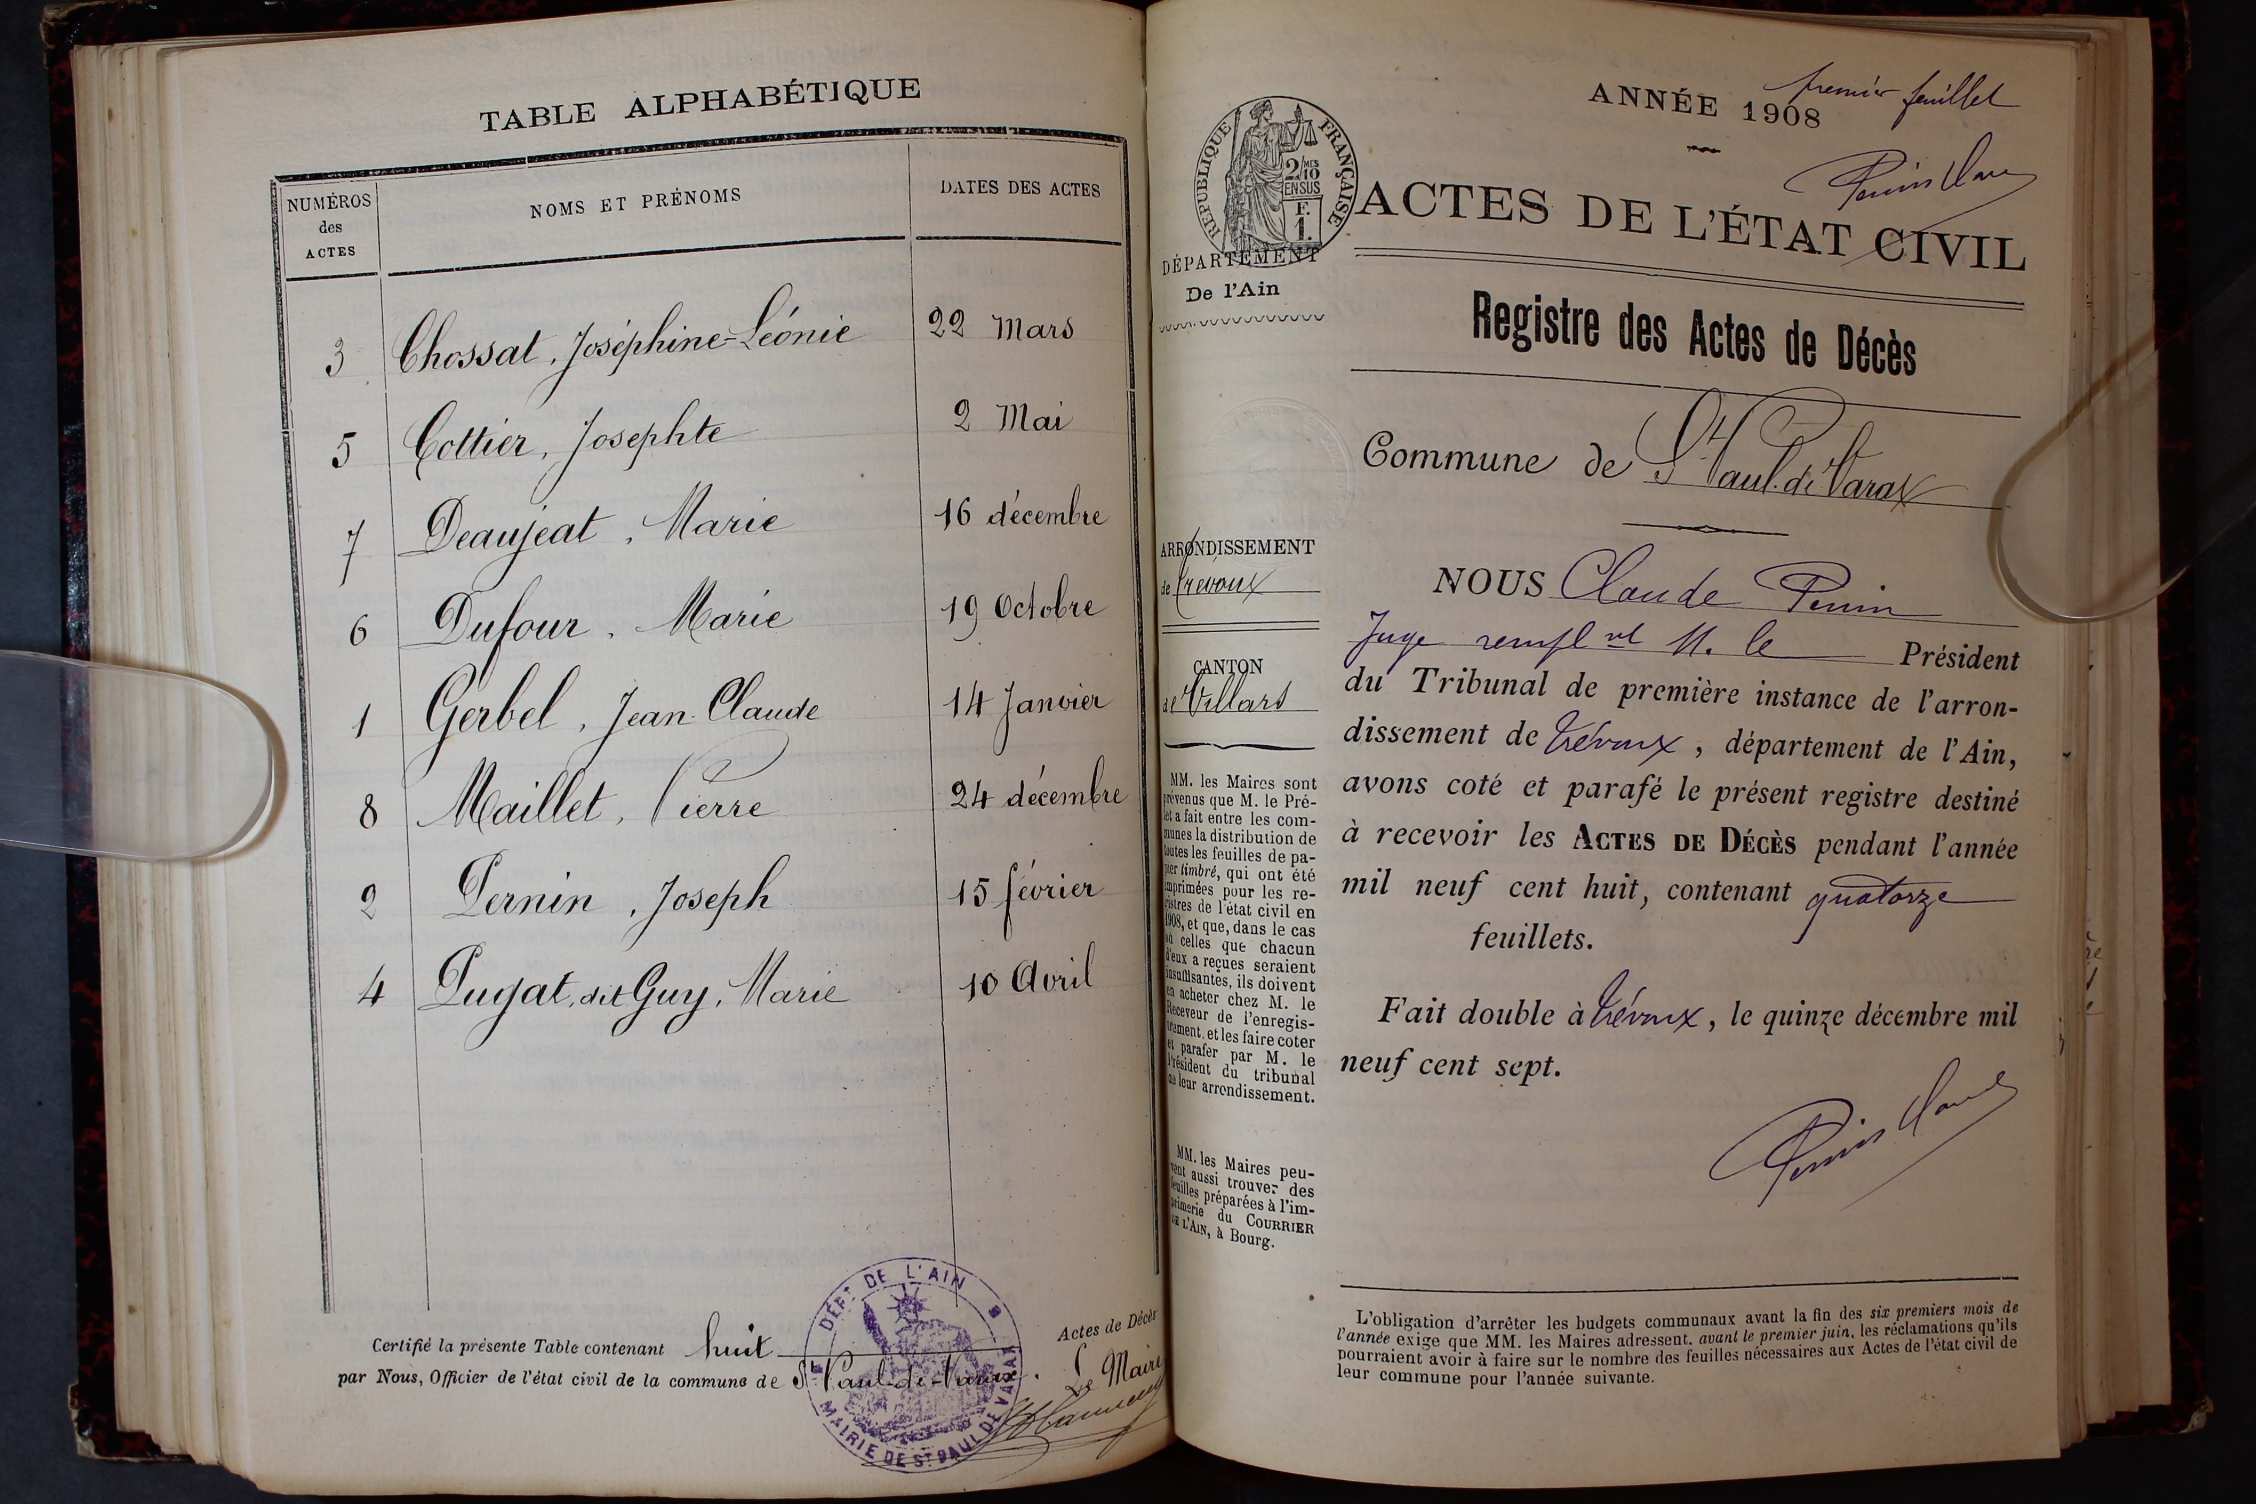 TABLE ALPHABÉTIQUE
NUMÉROS des ACTES
NOMS ET PRÉNOMS
DATES DES ACTES
3 Chossat, Joséphine-Léonie 22 Mars
5 Cottier, Josephte 2 Mai
7 Deaujeat, Marie 16 décembre
6 Dufour, Marie 19 Octobre
1 Gerbel, Jean-Claude 14 Janvier
8 Maillet, Pierre 24 décembre
2 Pernin, Joseph 15 février
4 Pugat, dit Guy, Marie 10 Avril
Certifié la présente Table contenant huit Actes de Décès
par Nous, Officier de l'état civil de la commune de St Paul-de-Varax.
Le Maire
DÉPT DE L'AIN
MAIRIE DE ST PAUL DE VARAX
premier feuillet
ANNÉE 1908
RÉPUBLIQUE FRANÇAISE
2/10 MES
EN SUS
F. 1.
ACTES DE L'ÉTAT CIVIL
DÉPARTEMENT
De l'Ain
Registre des Actes de Décès
Commune de St Paul-de-Varax
ARRONDISSEMENT
de Trévoux
CANTON
de Villars
NOUS Claude Perrin
Juge rempl nt M. le Président
du Tribunal de première instance de l'arron-
dissement de Trévoux, département de l'Ain,
avons coté et parafé le présent registre destiné
à recevoir les ACTES DE DÉCÈS pendant l'année
mil neuf cent huit, contenant quatorze
feuillets.
Fait double à Trévoux, le quinze décembre mil
neuf cent sept.
MM. les Maires sont
prévenus que M. le Pré-
fet a fait entre les com-
munes la distribution de
toutes les feuilles de pa-
pier timbré, qui ont été
imprimées pour les re-
gistres de l'état civil en
1908, et que, dans le cas
où celles que chacun
d'eux a reçues seraient
insuffisantes, ils doivent
en acheter chez M. le
Receveur de l'enregis-
trement, et les faire coter
et parafer par M. le
Président du tribunal
de leur arrondissement.
MM. les Maires peu-
vent aussi trouver des
feuilles préparées à l'im-
primerie du COURRIER
DE L'AIN, à Bourg.
L'obligation d'arrêter les budgets communaux avant la fin des six premiers mois de
l'année exige que MM. les Maires adressent, avant le premier juin, les réclamations qu'ils
pourraient avoir à faire sur le nombre des feuilles nécessaires aux Actes de l'état civil de
leur commune pour l'année suivante.